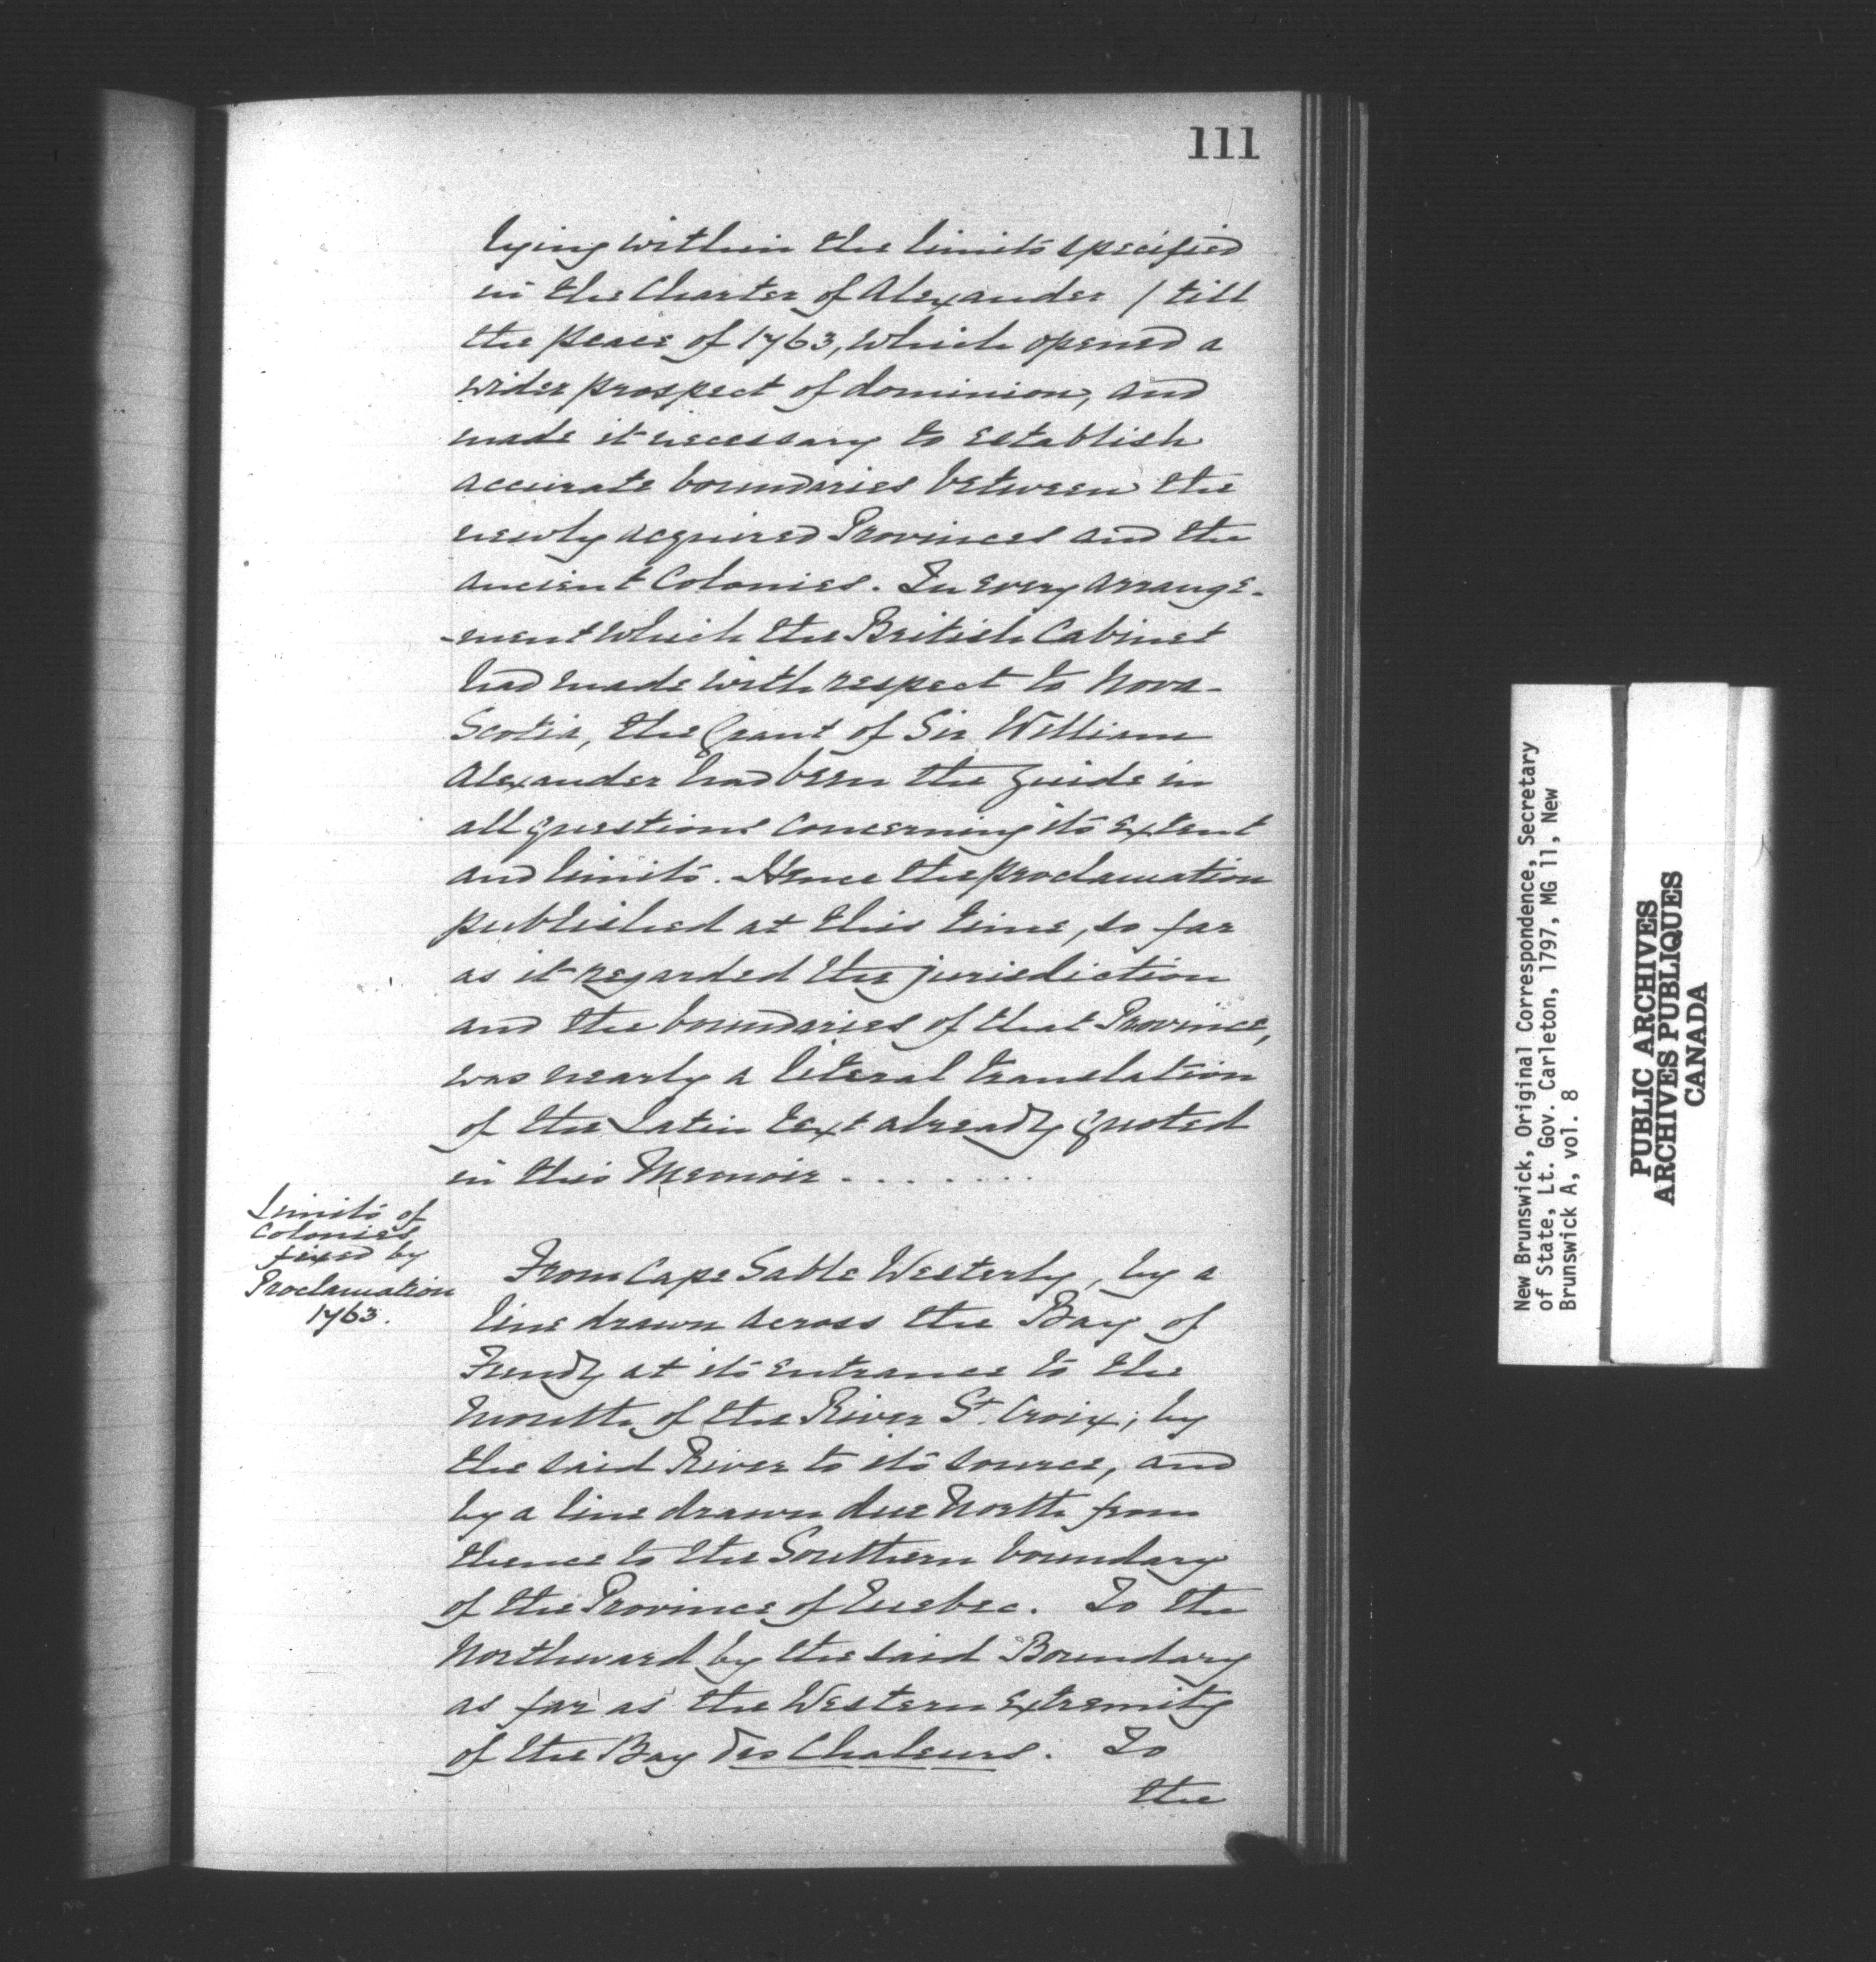 111
lying within the limits specified
in the Charter of Alexander / till
the peace of 1763, which opened a
wider prospect of dominion, and
made it necessary to establish
accurate boundaries between the
newly acquired Provinces and the
ancient Colonies. In every arrange-
-ment which the British Cabinet
had made with respect to Nova-
Scotia, the Grant of Sir William
Alexander had been the guide in
all questions concerning its extent
and limits. Hence the proclamation
published at this time, so far
as it regarded the jurisdiction
and the boundaries of that Province,
was nearly a literal translation
of the Latin text already quoted
in this Memoir. . . . . . . .
Limits of
Colonies
fixed by
Proclamation
1763.
From Cape Sable Westerly, by a
line drawn across the Bay of
Fundy at its entrance to the
Mouth of the River St. Croix; by
the said River to its source, and
by a line drawn due North from
thence to the Southern boundary
of the Province of Quebec. To the
Northward by the said Boundary
as far as the Western extremity
of the Bay des Chaleurs. To
the
New Brunswick, Original Correspondence, Secretary
of State, Lt. Gov. Carleton, 1797, MG 11, New
Brunswick A, vol. 8
PUBLIC ARCHIVES
ARCHIVES PUBLIQUES
CANADA